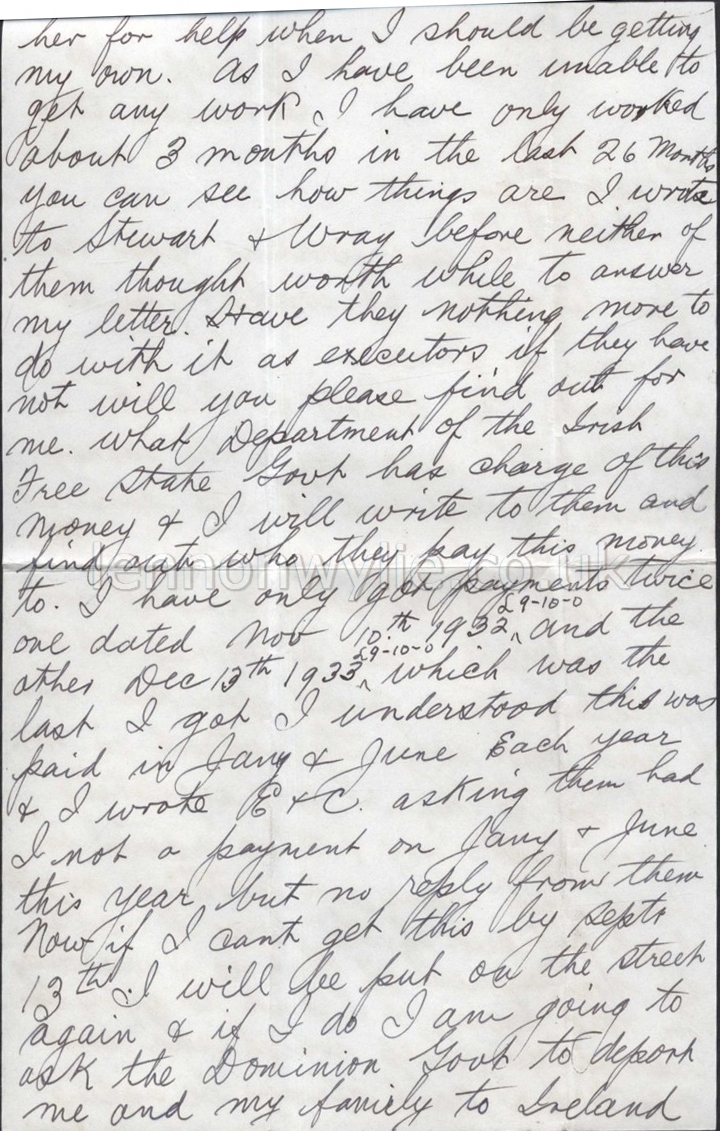 her for help when I should be getting
my own. As I have been unable to
get any work, I have only worked
about 3 months in the last 26 Months
you can see how things are I wrote
to Stewart & Wray before neither of
them thought worth while to answer
my letter. Have they nothing more to
do with it as executors if they have
not will you please find out for
me. what Department of the Irish
Free State Govt has charge of this
money & I will write to them and
find out who they pay this money
lennonwylie.co.uk
to. I have only got payments twice
one dated Nov 10th 1932 £9-10-0 and the
other Dec 13th 1933 £9-10-0 which was the
last I got I understood this was
paid in Jany & June Each year
& I wrote E & C. asking them had
I not a payment on Jany & June
this year but no reply from them
Now if I cant get this by Septr
13th. I will be put on the street
again & if I do I am going to
ask the Dominion Govt to deport
me and my family to Ireland